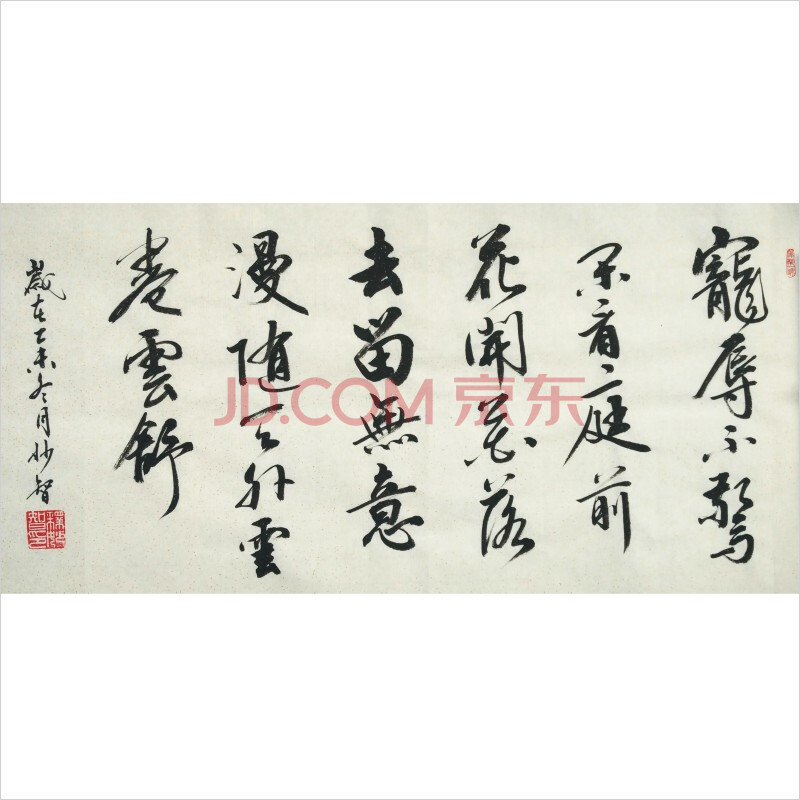 寵辱不驚
閑看庭前
花開花落
去留無意
漫隨天外雲
卷雲舒
歲在乙未冬月妙智
釋妙智印
JD.COM 京东